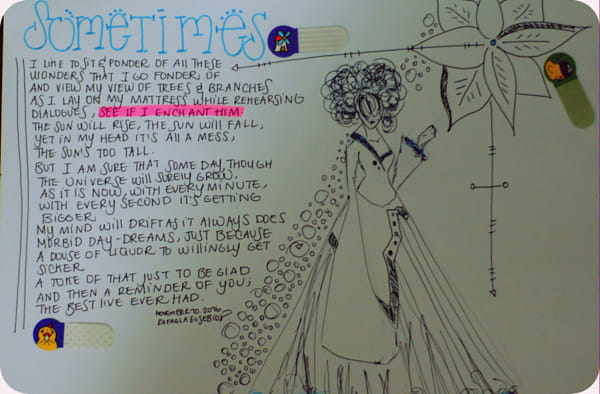 SOMETIMES
I LIKE TO SIT & PONDER OF All THESE
WONDERS THAT I GO FONDER OF
AND VIEW MY VIEW OF TREES & BRANCHES
AS I LAY ON MY MATTRESS WHILE REHEARSING
DIALOGUES, SEE IF I ENCHANT HIM.
THE SUN WILL RISE, THE SUN WILL FALL,
YET IN MY HEAD IT'S All A MESS,
THE SUN'S TOO TALL.
BUT I AM SURE THAT SOME DAY, THOUGH
THE UNIVERSE WILL SURELY GROW,
AS IT IS NOW, WITH EVERY MINUTE,
WITH EVERY SECOND IT'S GETTING
BIGGER
MY MIND WILL DRIFT AS IT ALWAYS DOES
MORBID DAY-DREAMS, JUST BECAUSE
A DOUSE OF LIQUOR TO WILLINGLY GET
SICKER
A TOKE OF THAT JUST TO BE GLAD
AND THEN A REMINDER OF YOU;
THE BEST I'VE EVER HAD.
NOVEMBER 10, 2010
RAFAELA EUSEBIO